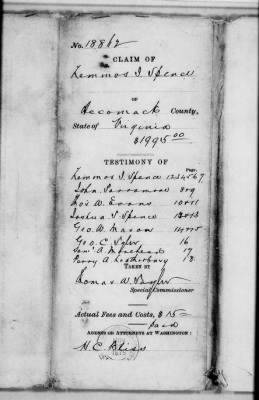 No. 18862
CLAIM OF
Lemmos I. Spence
OF
Accomack County,
State of Virginia
$1995.00
TESTIMONY OF
Page.
Lemmos I. Spence 1234567
John 8&9
A. Evans 10&11
Joshua S. Spence 12&13
Geo. W. Mason 14&15
Geo. C. Tyler 16
A. 17
Perry A. Leatherbury 18
TAKEN BY
Thomas W. Taylor
Special Commissioner
Actual Fees and Costs, $ 15 =
Paid
AGENTS OR ATTORNEYS AT WASHINGTON:
H. E. Bliss